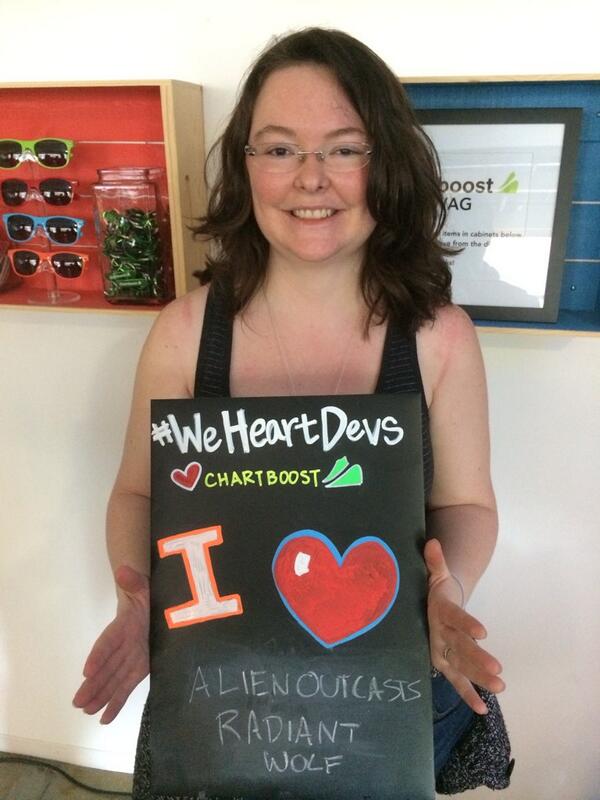 boost
AG
items in cabinets below
from the
#WeHeartDevs
CHARTBOOST
I
ALIEN OUTCASTS
RADIANT
WOLF